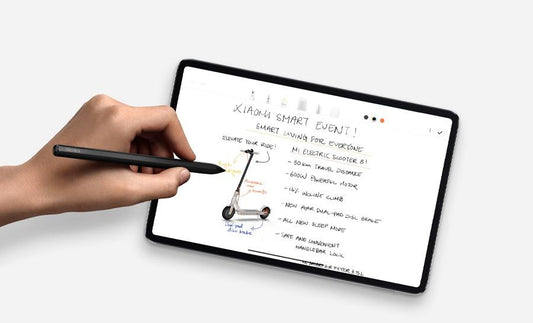 XIAOMI SMART EVENT!
SMART LIVING FOR EVERYONE
ELEVATE YOUR RIDE!
MI ELECTRIC SCOOTER 3!
- 30KM TRAVEL DISTANCE
- 600W POWERFUL MOTOR
- 16% INCLINE CLIMB
- NEW REAR DUAL-PAD DISC BRAKE
- ALL NEW SLEEP MODE
- SAFE AND CONVENIENT
HANDLEBAR LOCK